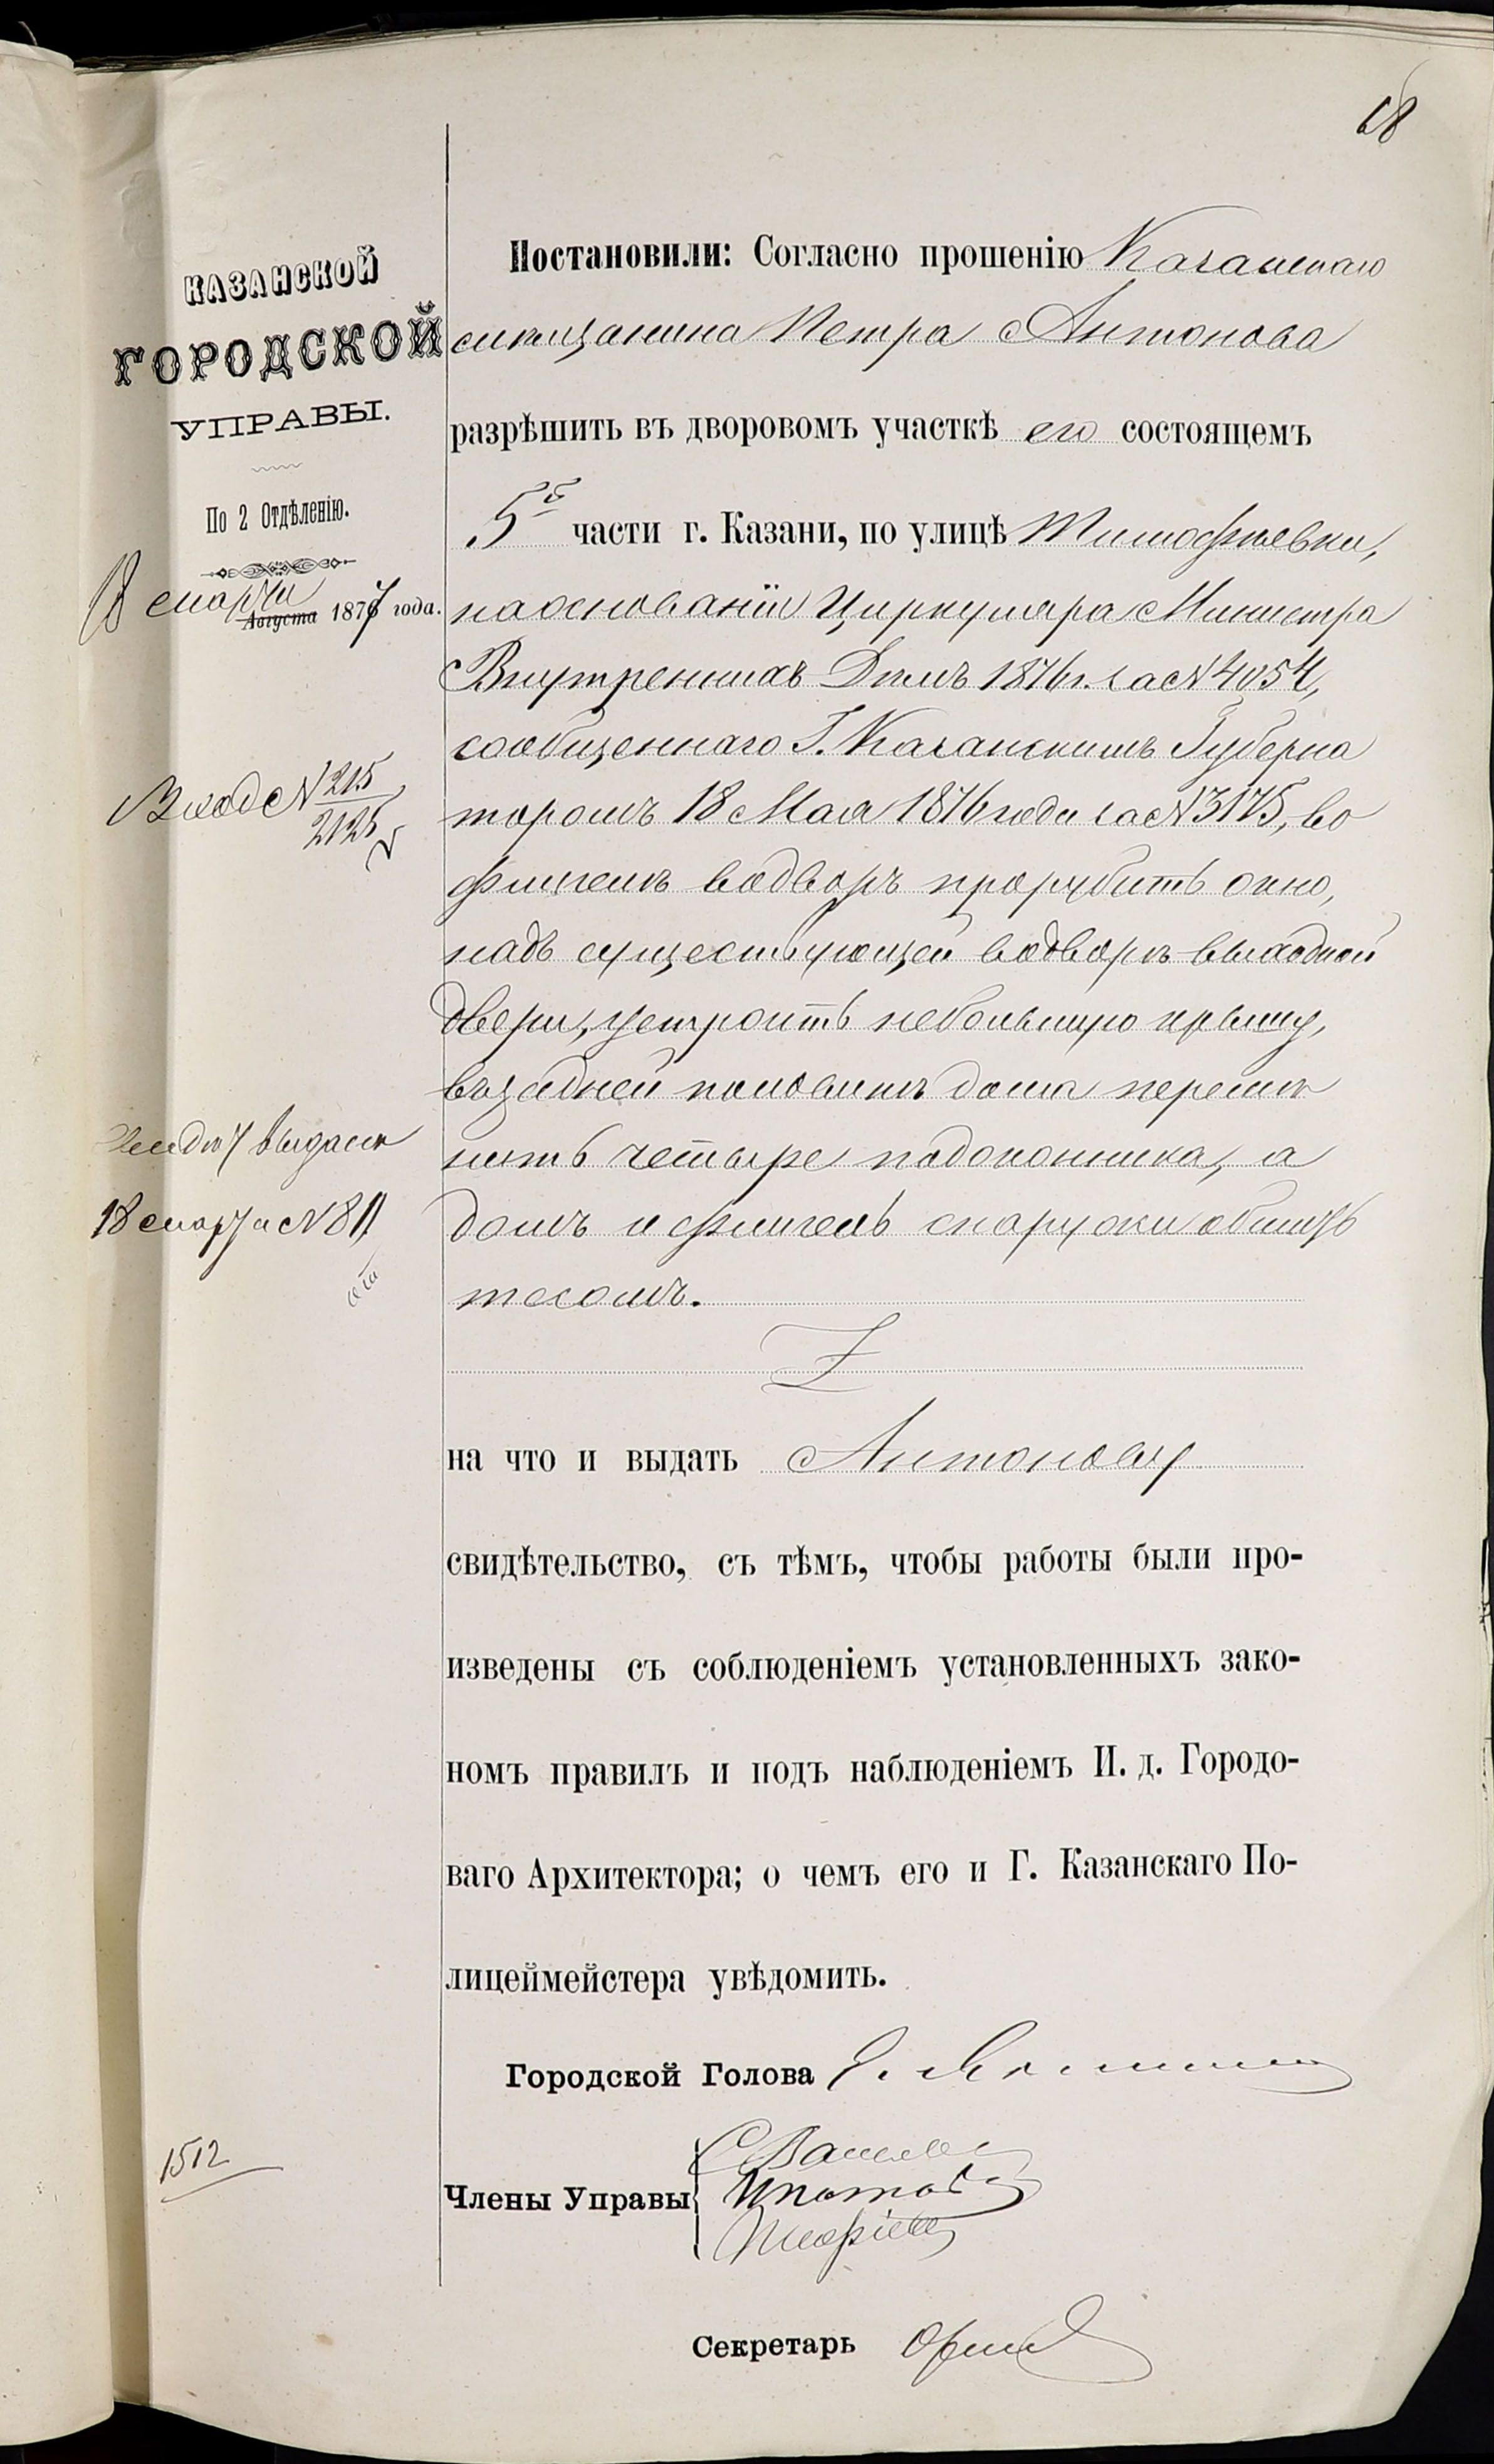 68
КАЗАНСКОЙ
ГОРОДСКОЙ
УПРАВЫ.
По 2 Отдѣленію.
18 марта Августа 1877 года.
Вход № 215
2125
выдано
18 марта № 811
1512
Постановили: Согласно прошенію Казанскаго
мѣщанина Петра Антонова
разрѣшить въ дворовомъ участкѣ его состоящемъ
5й части г. Казани, по улицѣ Тимофѣевки,
на основаніи Циркуляра Министра
Внутреннихъ Дѣлъ 1876 г. за № 4054,
сообщеннаго Г. Казанскимъ Губерна
торомъ 18 Мая 1876 года за № 3175, во
флигелѣ во дворъ прорубить окно,
надъ существующей во дворѣ выходной
двери, устроить небольшую крышу,
въ задней половинѣ дома перемѣ
нить четыре подоконника, а
домъ и флигель снаружи обшить
тесомъ.
на что и выдать Антонову
свидѣтельство, съ тѣмъ, чтобы работы были про-
изведены съ соблюденіемъ установленныхъ зако-
номъ правилъ и подъ наблюденіемъ И. д. Городо-
ваго Архитектора; о чемъ его и Г. Казанскаго По-
лицеймейстера увѣдомить.
Городской Голова
Члены Управы
Секретарь